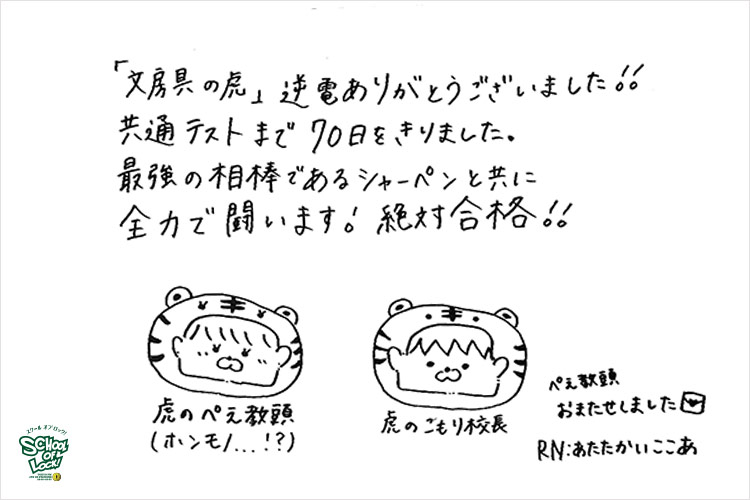 「文房具の虎」逆電ありがとうございました!!
共通テストまで70日をきりました。
最強の相棒であるシャーペンと共に
全力で闘います! 絶対合格!!
虎のぺえ教頭
(ホンモノ...!?)
虎のこもり校長
ぺえ教頭
おまたせしました
RN:あたたかいここあ
スクール オブ ロック!
SCHOOL
OF
LOCK!